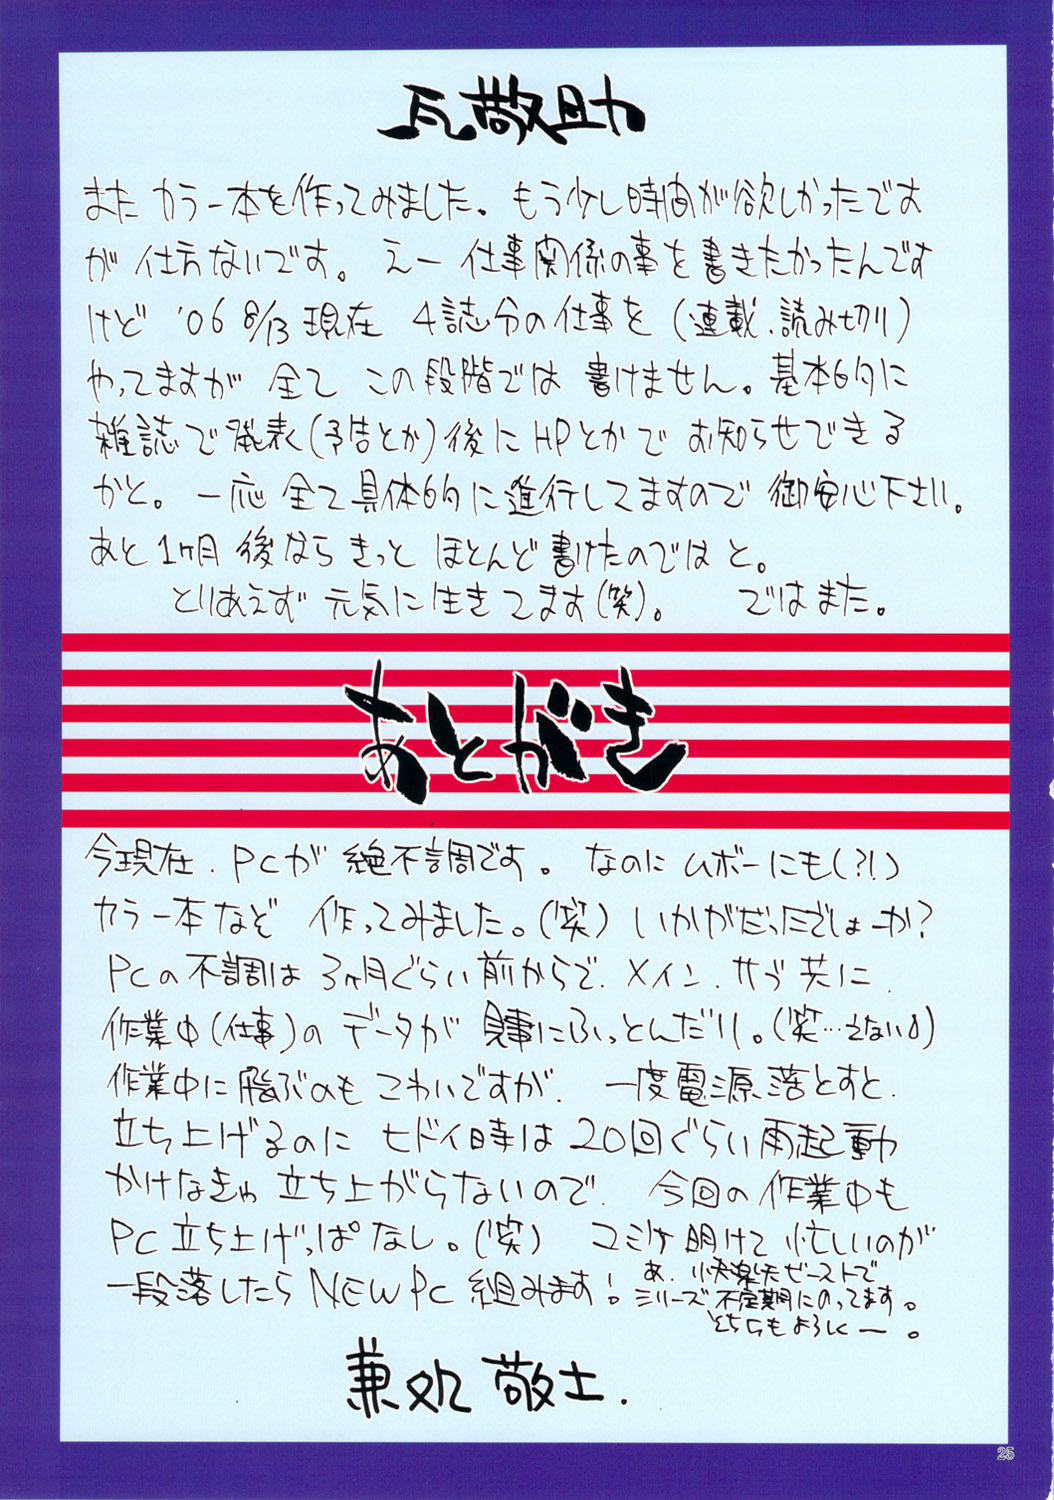 瓦敬助
また カラー本を作ってみました。もう少し時間が欲しかったです
が 仕方ないです。えー 仕事関係の事を書きたかったんです
けど '06 8/13 現在 4誌分の仕事を(連載、読み切り)
やってますが 全て この段階では 書けません。基本的に
雑誌で発表(予告とか)後にHPとかで お知らせできる
かと。一応 全て具体的に進行してますので 御安心下さい。
あと1ヶ月後なら きっと ほとんど書けたのでは と。
とりあえず 元気に生きてます(笑)。 ではまた。
あとがき
今現在、PCが 絶不調です。なのに ムボーにも(?!)
カラー本なぞ 作ってみました。(笑) いかがだったでしょーか?
PCの不調は 3ヶ月ぐらい前からで、メイン、サブ共に、
作業中(仕事)の データが 見事にふっとんだり。(笑…えない)
作業中に飛ぶのも こわいですが、一度電源落とすと、
立ち上げるのに ヒドイ時は 20回ぐらい再起動
かけなきゃ 立ち上がらないので、今回の作業中も
PC立ち上げっぱなし。(笑) コミケ明けて 忙しいのが
一段落したら NEW PC 組みます!
あ、快楽天ビーストで
シリーズ不定期にのってます。
そちらもよろしくー。
兼処 敬士.
25